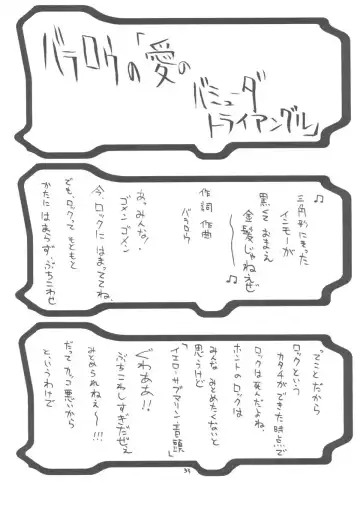 バラロウの「愛の
バミューダ
トライアングル」
♫
三角形にそった
インモーが
黒くておまえ
金髪じゃねえぜ
♫
作詞作曲
バラロウ
お。みんな!
ゴメンゴメン
今、ロックにはまっててね。
でも、ロックってもともと
かたにはまらず、ぶちこわせ
ってことだから
ロックという
カタチができた時点で
ロックは死んだよね。
ホントのロックは
みんなみとめたくないと
思うけど
「イエローサブマリン音頭」
ぐわああ!!
ぶちこわしすぎだぜぇ
みとめられねぇ〜!!!
だってカッコ悪いから
というわけで
39